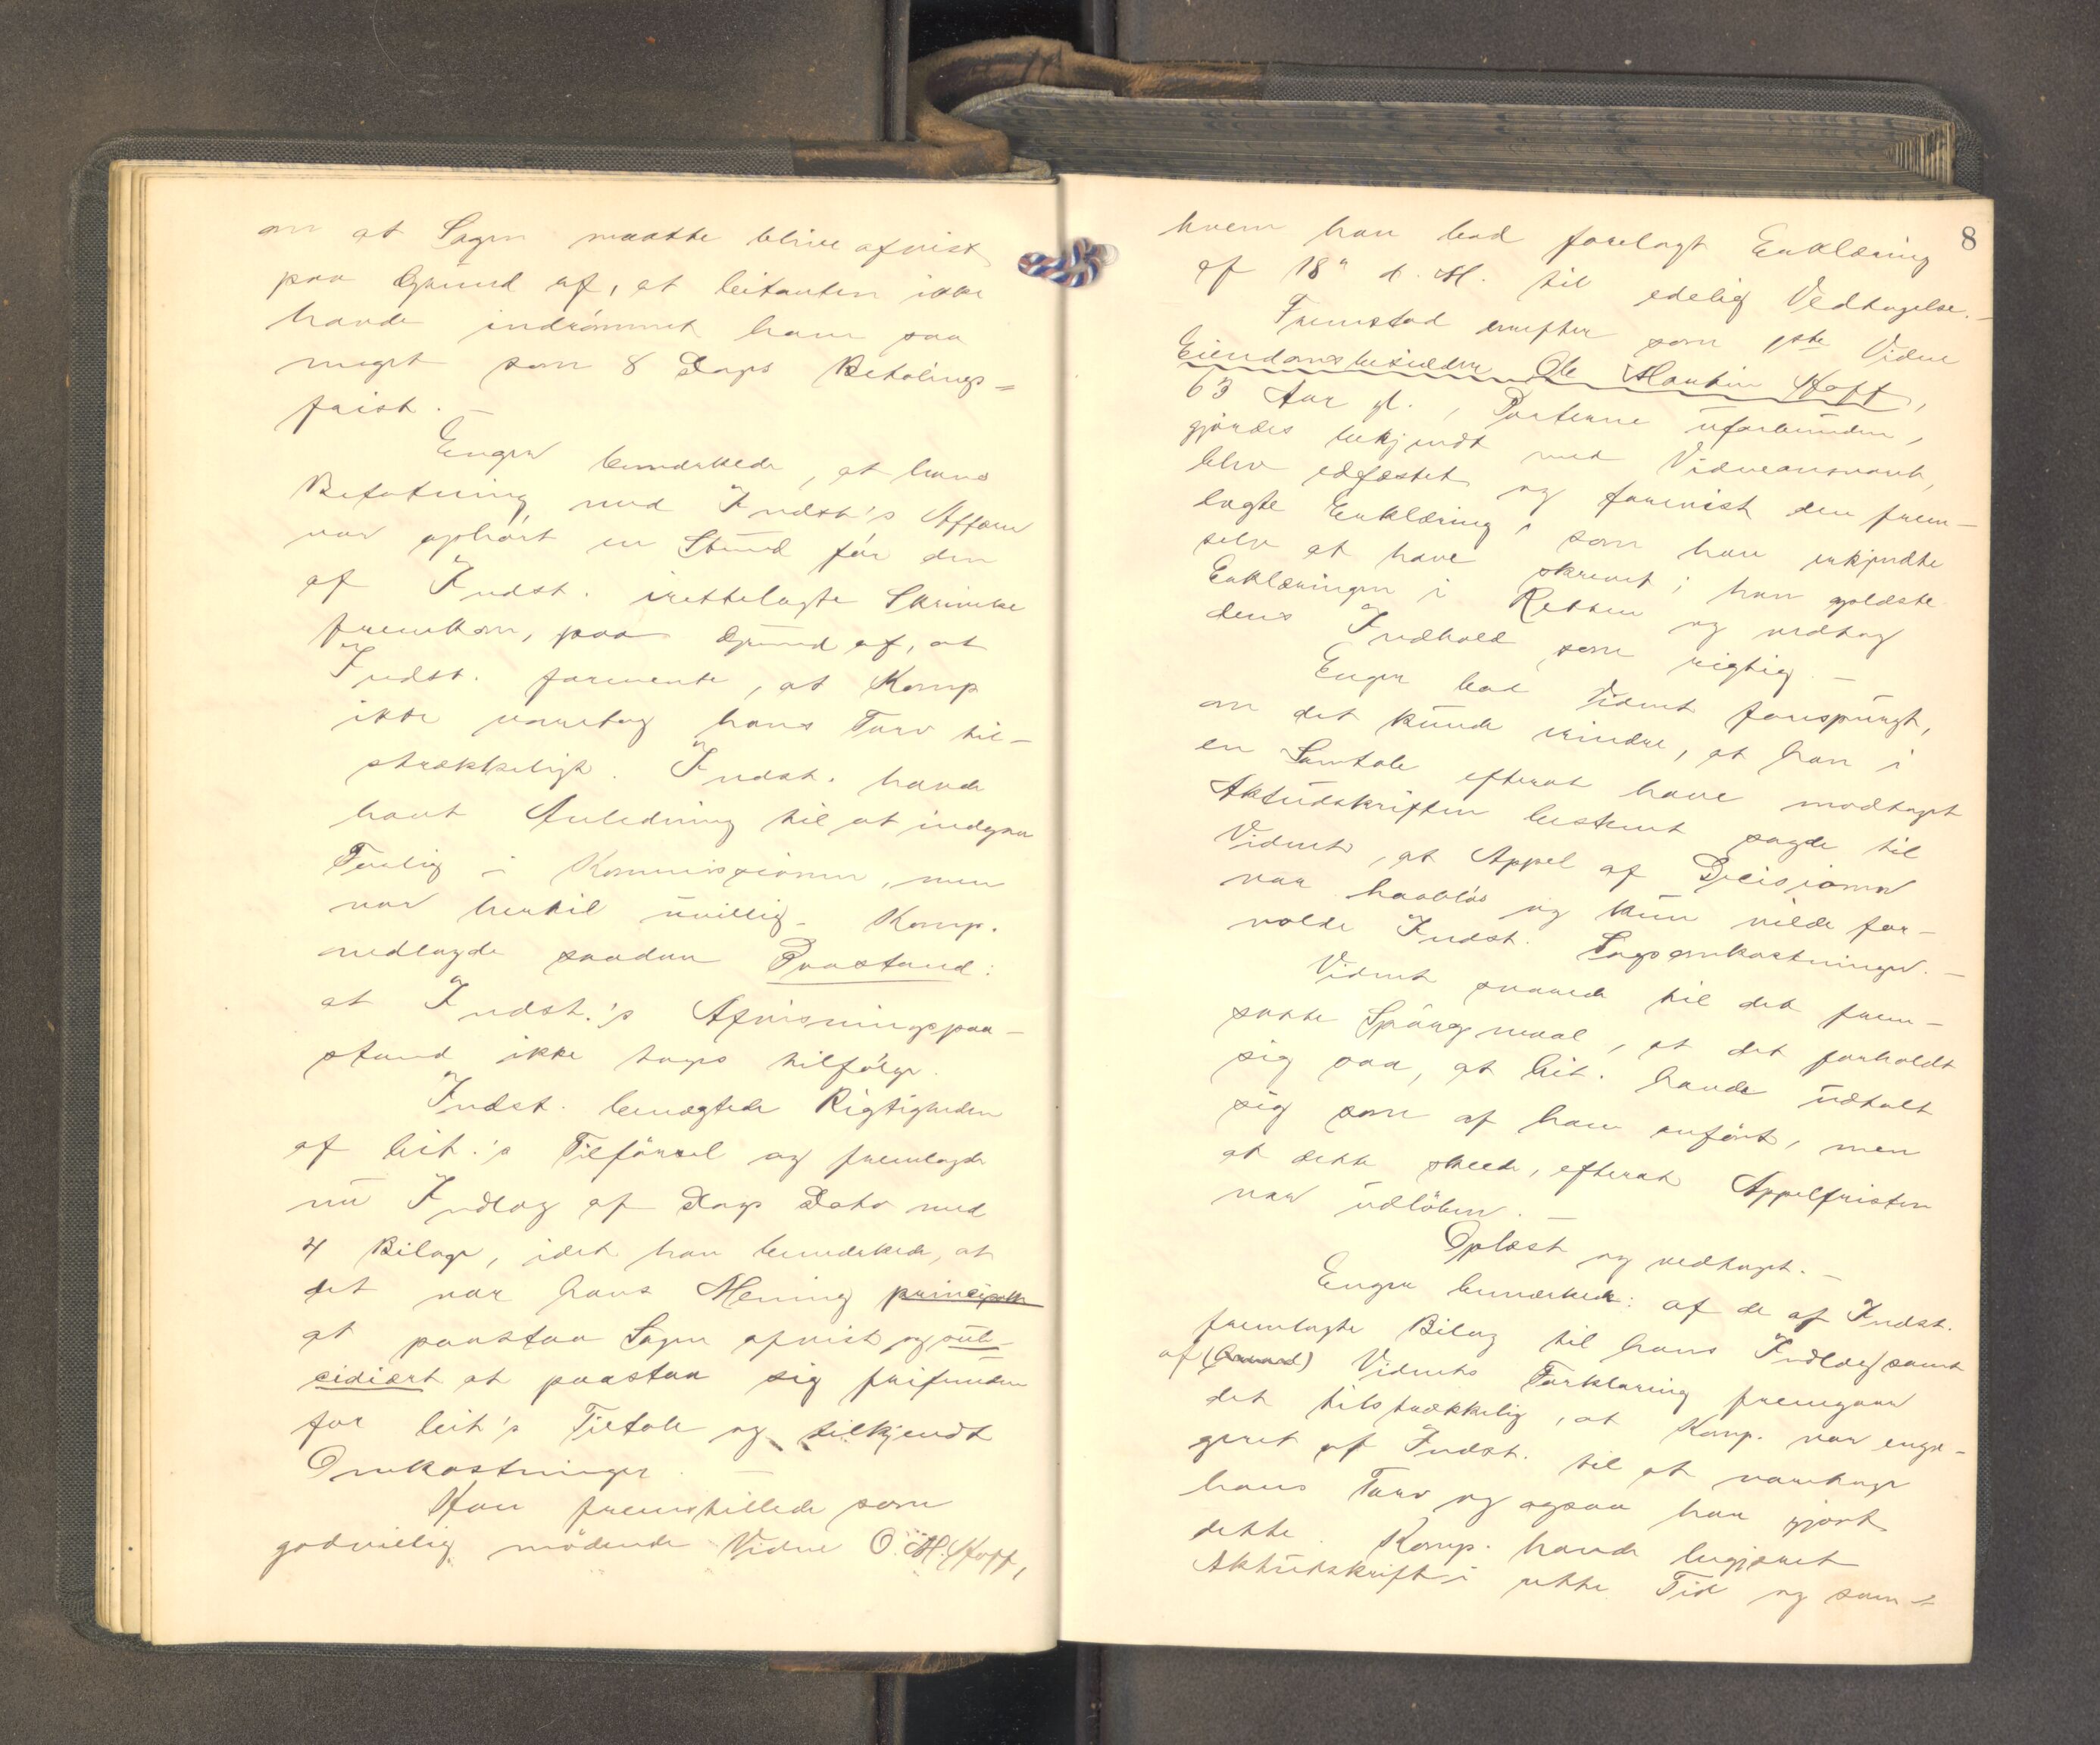 om at Sagen maatte blive afvist
paa Grund af, at Citanten ikke
havde indrømmet ham saa
meget som 8 Dags Betalings=
frist. —
Enger bemærkede, at hans
Befatning med Indst's Affære
var ophørt en Stund før den
af Indst. irettelagte Skrivelse
fremkom, paa Grund af, at
Indst. formente, at Komp
ikke varetog hans Tarv til-
strækkeligt. Indst. havde
havt Anledning til at indgaa
Forlig i Kommissionen, men
var hertil uvillig. Komp.
nedlagde saadan Paastand:
at Indst.'s Afvisningspaa-
stand ikke tages tilfølge.
Indst. benægtede Rigtigheden
af Cit.'s Tilførsel og fremlagde
nu Indlæg af Dags Dato med
4 Bilage, idet han bemærkede, at
det var hans Mening principalt
at paastaa Sagen afvist og sub-
sidiært at paastaa sig frifunden
for Cit's Tiltale og tilkjendt
Omkostninger. —
Han fremstillede som
godvillig mødende Vidne O. M. Hoff,
8
hvem han bad forelagt Erklæring
af 18de d. M. til edelig Vedtagelse. —
Fremstod derefter som 1ste Vidne
Eiendomsbesidder Ole Martin Hoff,
63 Aar gl., Parterne uforbunden,
gjordes bekjendt med Vidneansvaret,
blev edfæstet og forevist den frem-
lagte Erklæring, som han erkjendte
selv at have skrevet; han oplæste
Erklæringen i Retten og vedtog
dens Indhold som rigtig. —
Enger bad Vidnet forespurgt,
om det kunde erindre, at han i
en Samtale efterat have modtaget
Aktudskriften bestemt sagde til
Vidnet, at Appel af Decisionen
var haabløs og kun vilde for-
volde Indst. Sagsomkostninger. —
Vidnet svarede til det frem-
satte Spørgsmaal, at det forholdt
sig saa, at Cit. havde udtalt
sig som af ham anført, men
at dette skede, efterat Appelfristen
var udløben. —
Oplæst og vedtaget. —
Enger bemærkede: af de af Indst.
fremlagte Bilag til hans Indlæg samt
af Vidnets Forklaring fremgaar
det tilstrækkelig, at Komp. var enga-
geret af Indst. til at varetage
hans Tarv og ogsaa har gjort
dette. Komp. havde begjæret
Aktudskrift i rette Tid og sam-